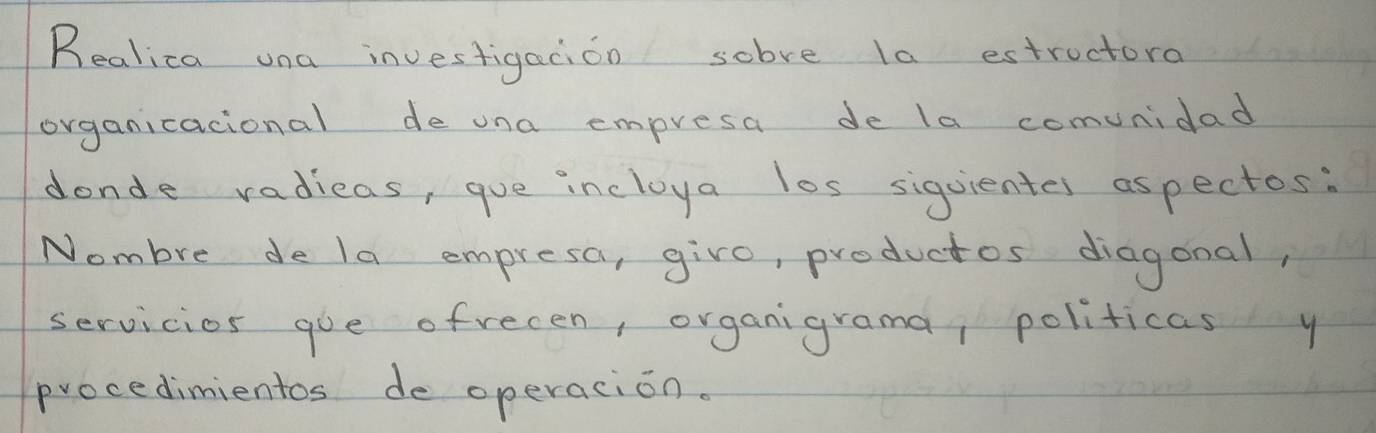 Realiza una investigación sobre la estructora
organizacional de una empresa de la comunidad
donde radicas, que incluya los siguientes aspectos:
Nombre de la empresa, giro, productos diagonal,
servicios que ofrecen, organigrama, politicas y
procedimientos de operación.